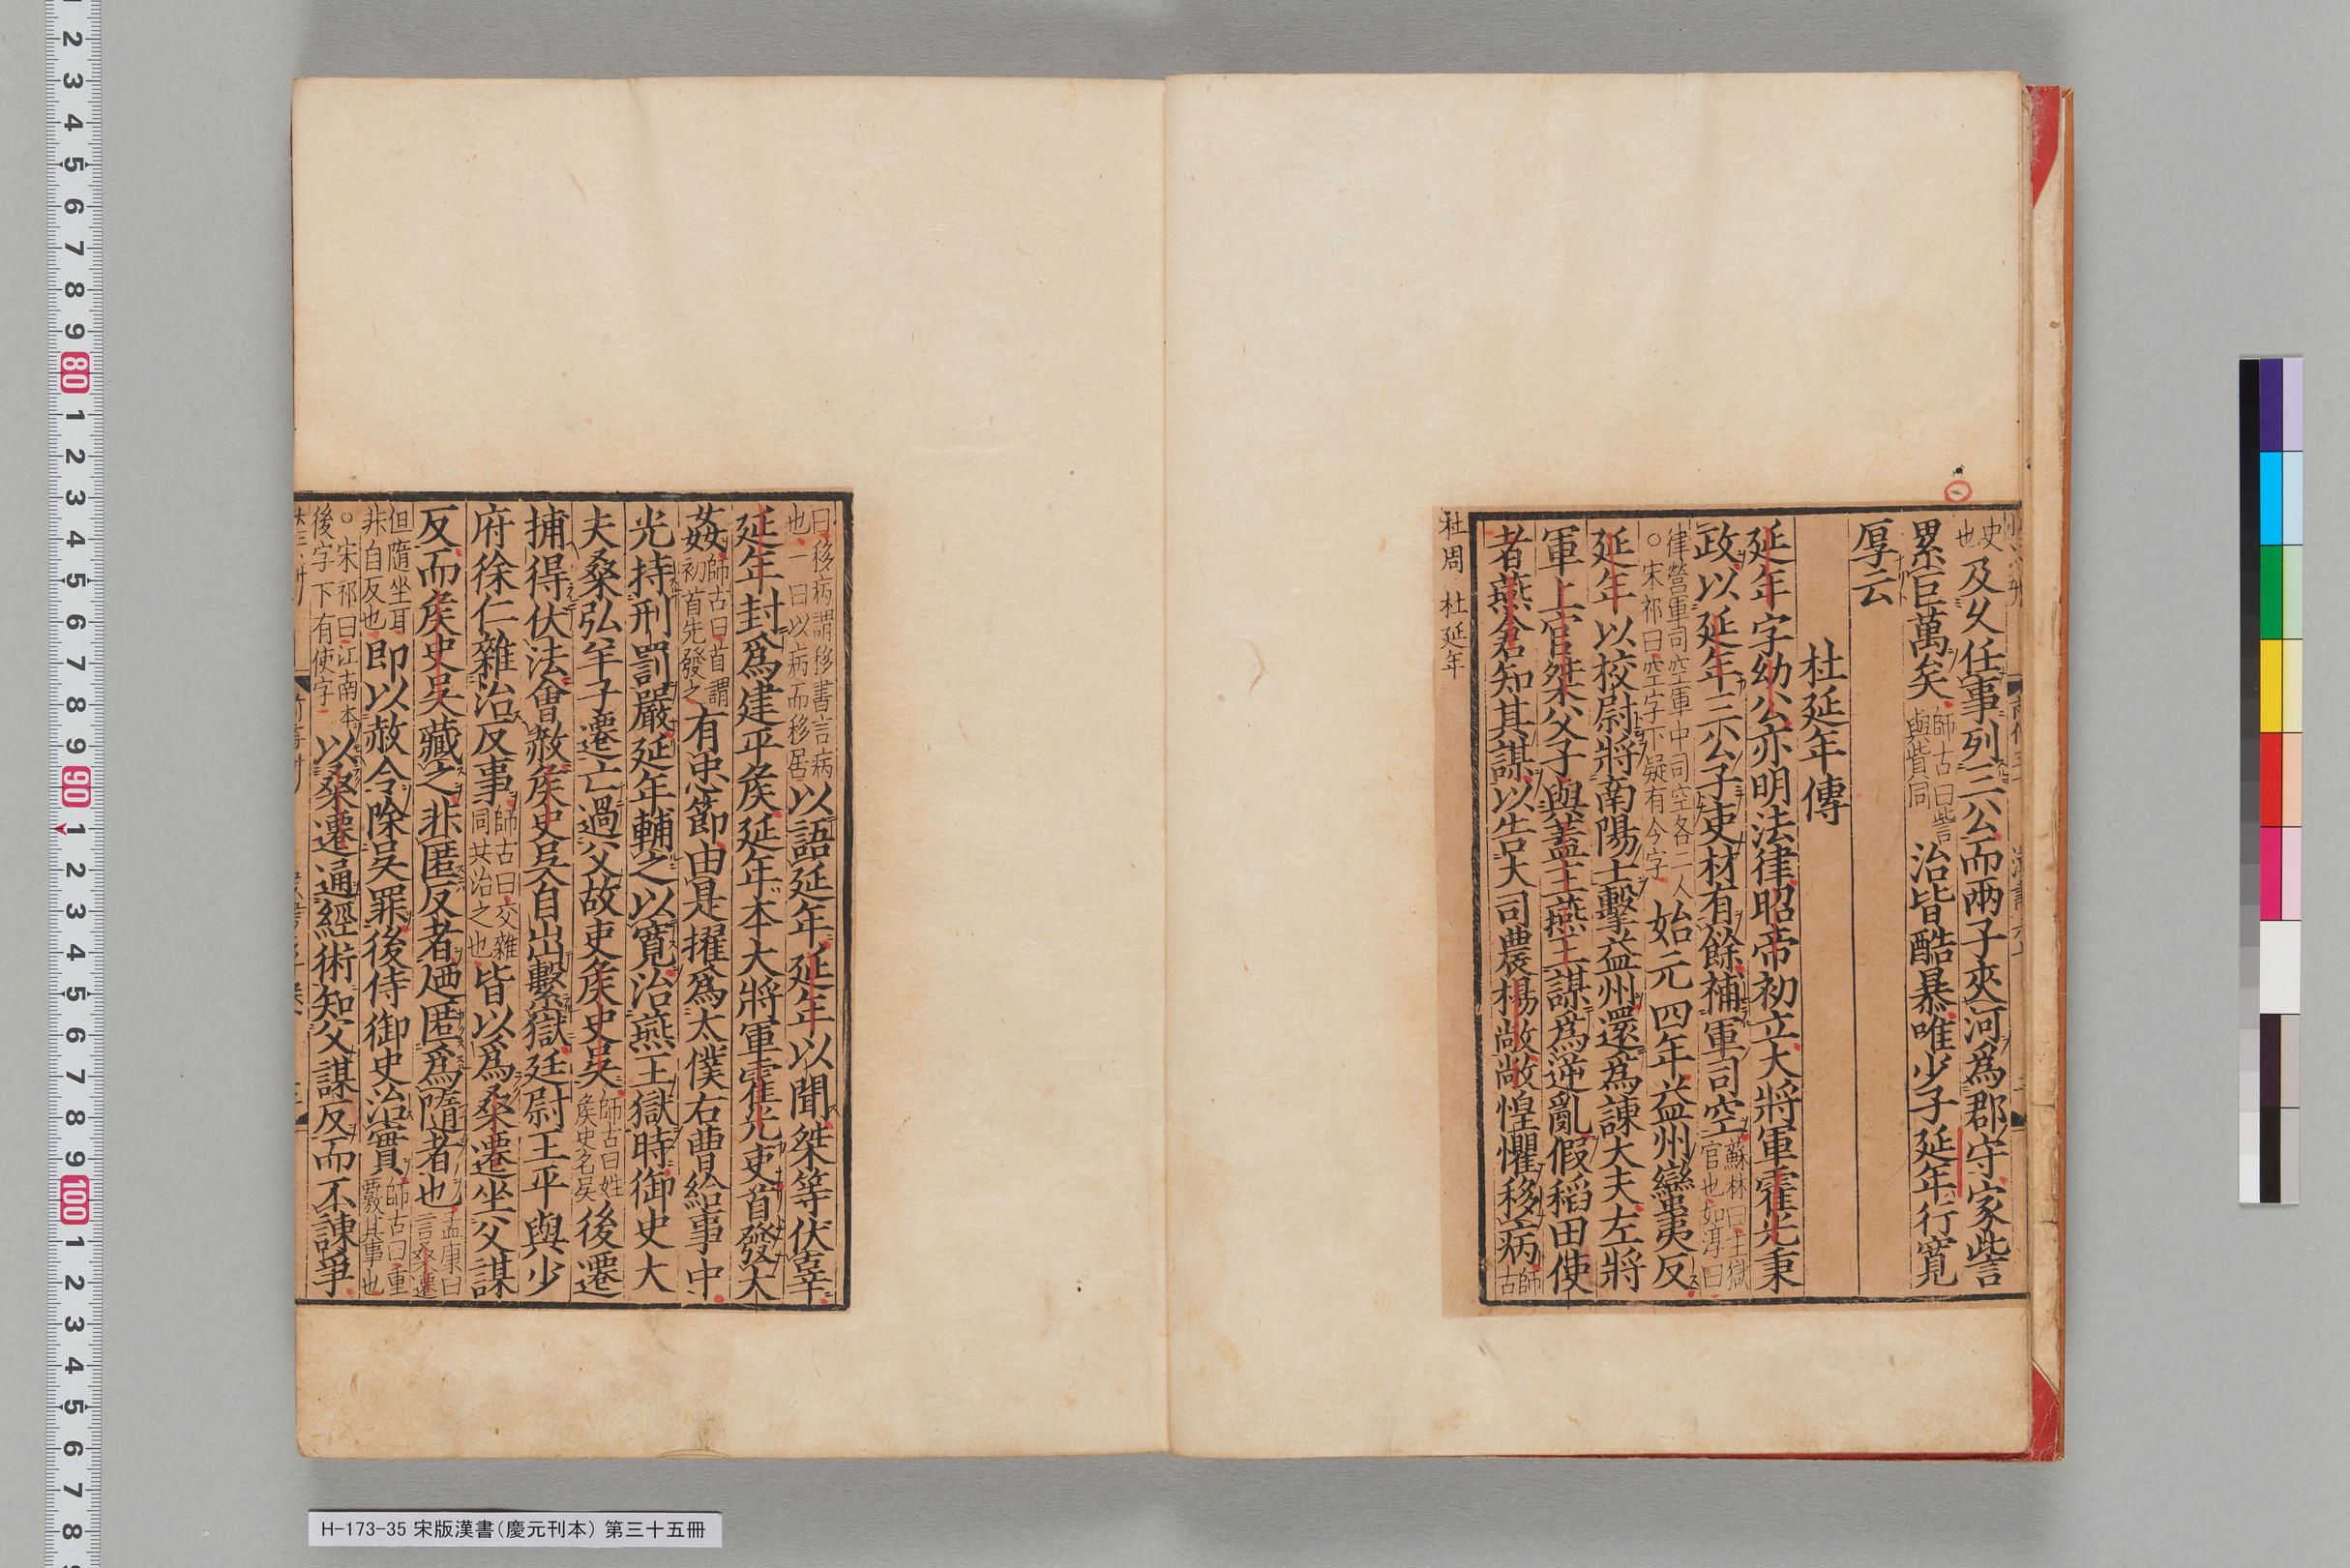 史也及久任事列三公而兩子夾河爲郡守家訾
累巨萬矣師古曰訾與貲同治皆酷暴唯少子延年行寬
厚云
杜延年傳
延年字幼公亦明法律昭帝初立大將軍霍光秉
政以延年三公子吏材有餘補軍司空蘇林曰主獄官也如淳曰
律營軍司空軍中司空各二人○宋祁曰空字下疑有令字始元四年益州蠻夷反
延年以校尉將南陽士擊益州還爲諫大夫左將
軍上官桀父子與蓋主燕王謀爲逆亂假稻田使
者燕倉知其謀以告大司農楊敞敞惶懼移病師古
杜周 杜延年
曰移病謂移書言病也一曰以病而移居以語延年延年以聞桀等伏辜
延年封爲建平矦延年本大將軍霍光吏首發大
姦師古曰首謂初首先發之有忠節由是擢爲太僕右曹給事中
光持刑罰嚴延年輔之以寬治燕王獄時御史大
夫桑弘羊子遷亡過父故吏矦史吳師古曰姓矦史名吳後遷
捕得伏法會赦矦史吳自出繫獄廷尉王平與少
府徐仁雜治反事師古曰交雜同共治之也皆以爲桑遷坐父謀
反而矦史吳藏之非匿反者廼匿爲隨者也孟康曰言桑遷
但隨坐耳非自反也即以赦令除吳罪後侍御史治實師古曰重覈其事也
○宋祁曰江南本後字下有使字以桑遷通經術知父謀反而不諫爭
H-173-35 宋版漢書（慶元刊本） 第三十五冊